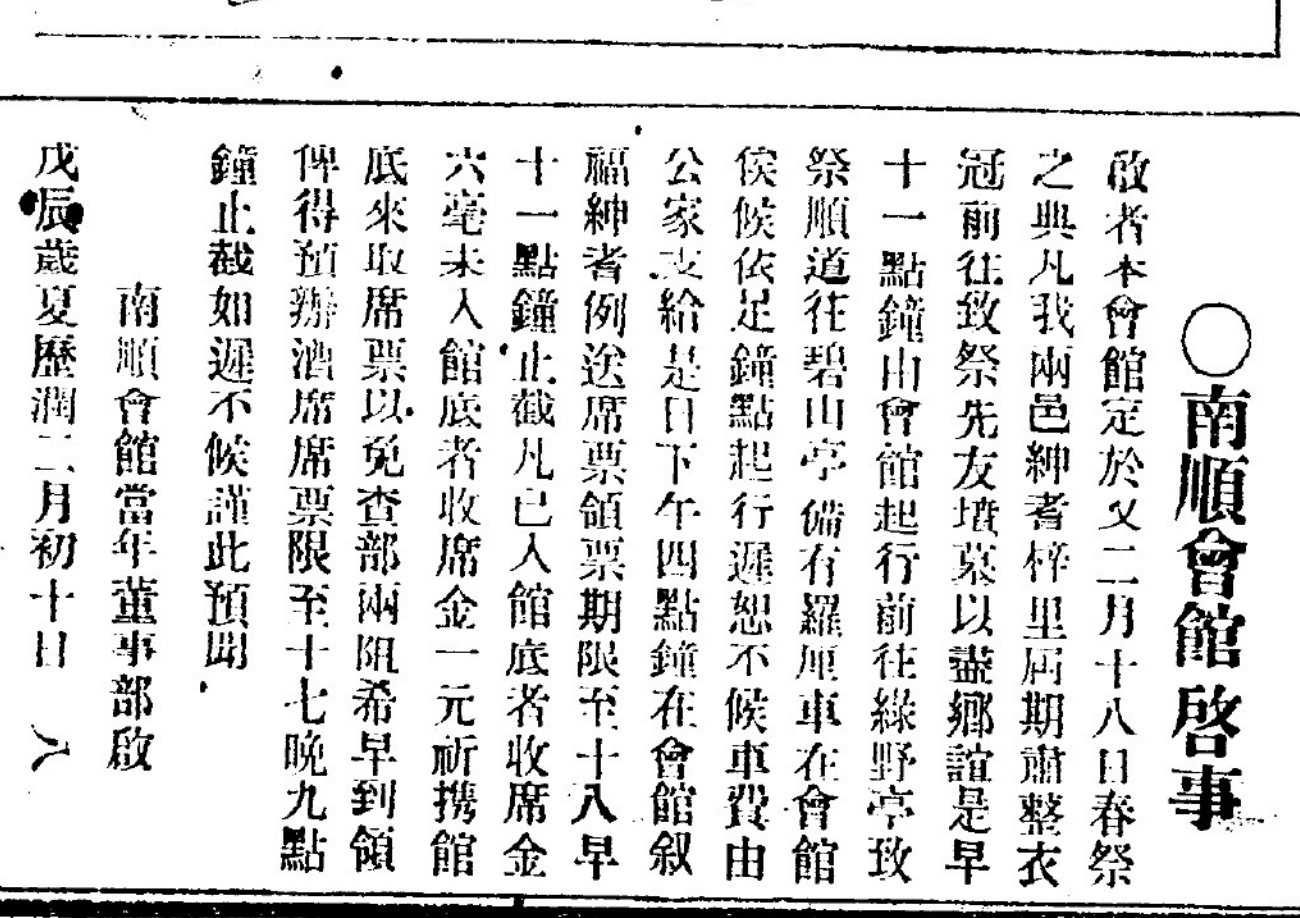 ○南順會館啓事
啟者本會館定於又二月十八日春祭
之典凡我兩邑紳耆梓里屆期肅整衣
冠前往致祭先友墳墓以盡鄉誼是早
十一點鐘由會館起行前往綠野亭致
祭順道往碧山亭備有羅厘車在會館
俟候依足鐘點起行遲恕不候車費由
公家支給是日下午四點鐘在會館叙
福紳耆例送席票領票期限至十八早
十一點鐘止截凡已入館底者收席金
六毫未入館底者收席金一元祈携館
底來取席票以免查部兩阻希早到領
俾得預辦酒席席票限至十七晚九點
鐘止截如遲不候謹此預聞
南順會館當年董事部啟
戊辰歲夏歷潤二月初十日 八